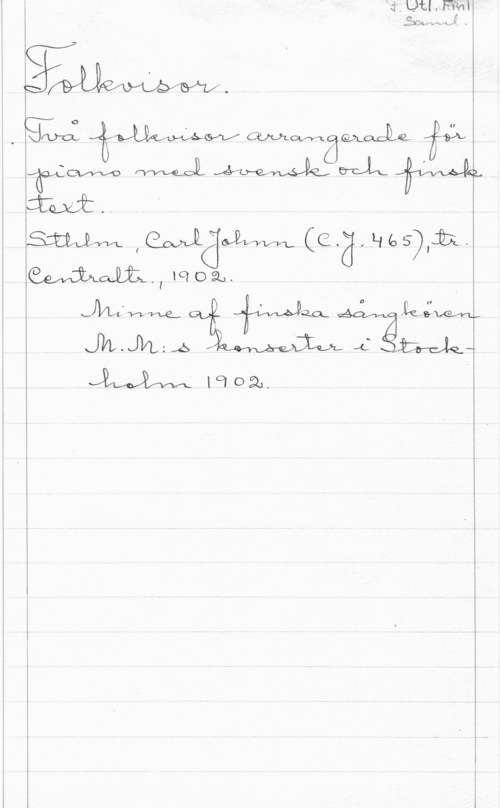 F. Utl. Finl
Saml.
Folkvisor.
Två folkvisor arrangerade för
piano med svensk och finsk
text.
Sthlm, Carl Johnn (C.J. 465), tr.
Centraltr., 1902.
Minne af finska sångkören
M.M:s konserter i Stock-
holm 1902.